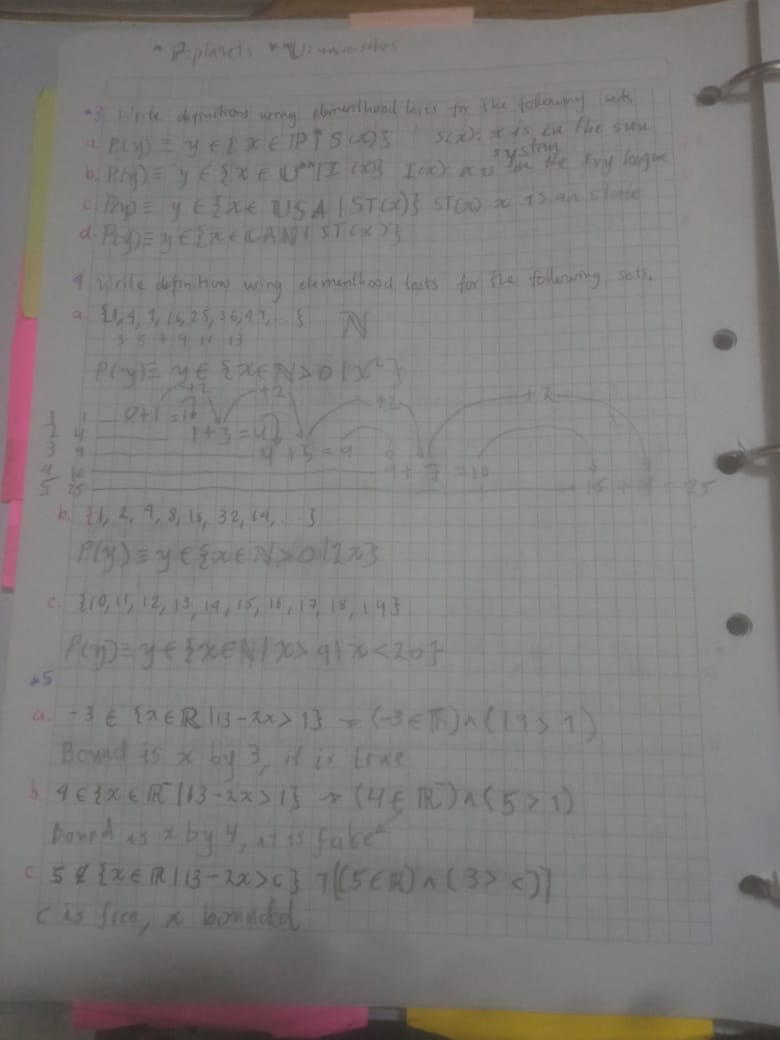 * P: planets ** U: universities
*3 Write definitions using elementhood tests for the following sets
a. P(y) ≡ y ∈ { x ∈ P* | S(x)} S(x): x is in the sun system
b. P(y) ≡ y ∈ {x ∈ U** | I(x)} I(x): x is in the Ivy league
c. P(y) ≡ y ∈ {x ∈ USA | ST(x)} ST(x) x is an state
d. P(y) ≡ y ∈ {x ∈ CAN | ST(x)}
4 Write definitions using elementhood tests for the following sets.
a. {1, 4, 9, 16, 25, 36, 49, ...} ℕ
3 5 7 9 11 13
P(y) ≡ y ∈ {x ∈ ℕ > 0 | x²}
+2 +2 +2 +2
1 1 0+1=1
2 4 1+3=4
3 9 4+5=9
4 16 9+7=16
5 25 16+9=25
b. {1, 2, 4, 8, 16, 32, 64, ...}
P(y) ≡ y ∈ {x ∈ ℕ > 0 | 2x}
c. {10, 11, 12, 13, 14, 15, 16, 17, 18, 19}
P(y) ≡ y ∈ {x ∈ ℕ | x > 9 | x < 20}
*5
a. -3 ∈ {x ∈ ℝ | 13 - 2x > 1} → (-3 ∈ ℝ) ∧ (19 > 1)
Bound is x by 3, it is true
b. 4 ∈ {x ∈ ℝ⁻ | 13 - 2x > 1} → (4 ∈ ℝ⁻) ∧ (5 > 1)
Bound is x by 4, it is false
c. 5 ∉ {x ∈ ℝ | 13 - 2x > c} ¬[(5 ∈ ℝ) ∧ (3 > c)]
c is free, x bounded